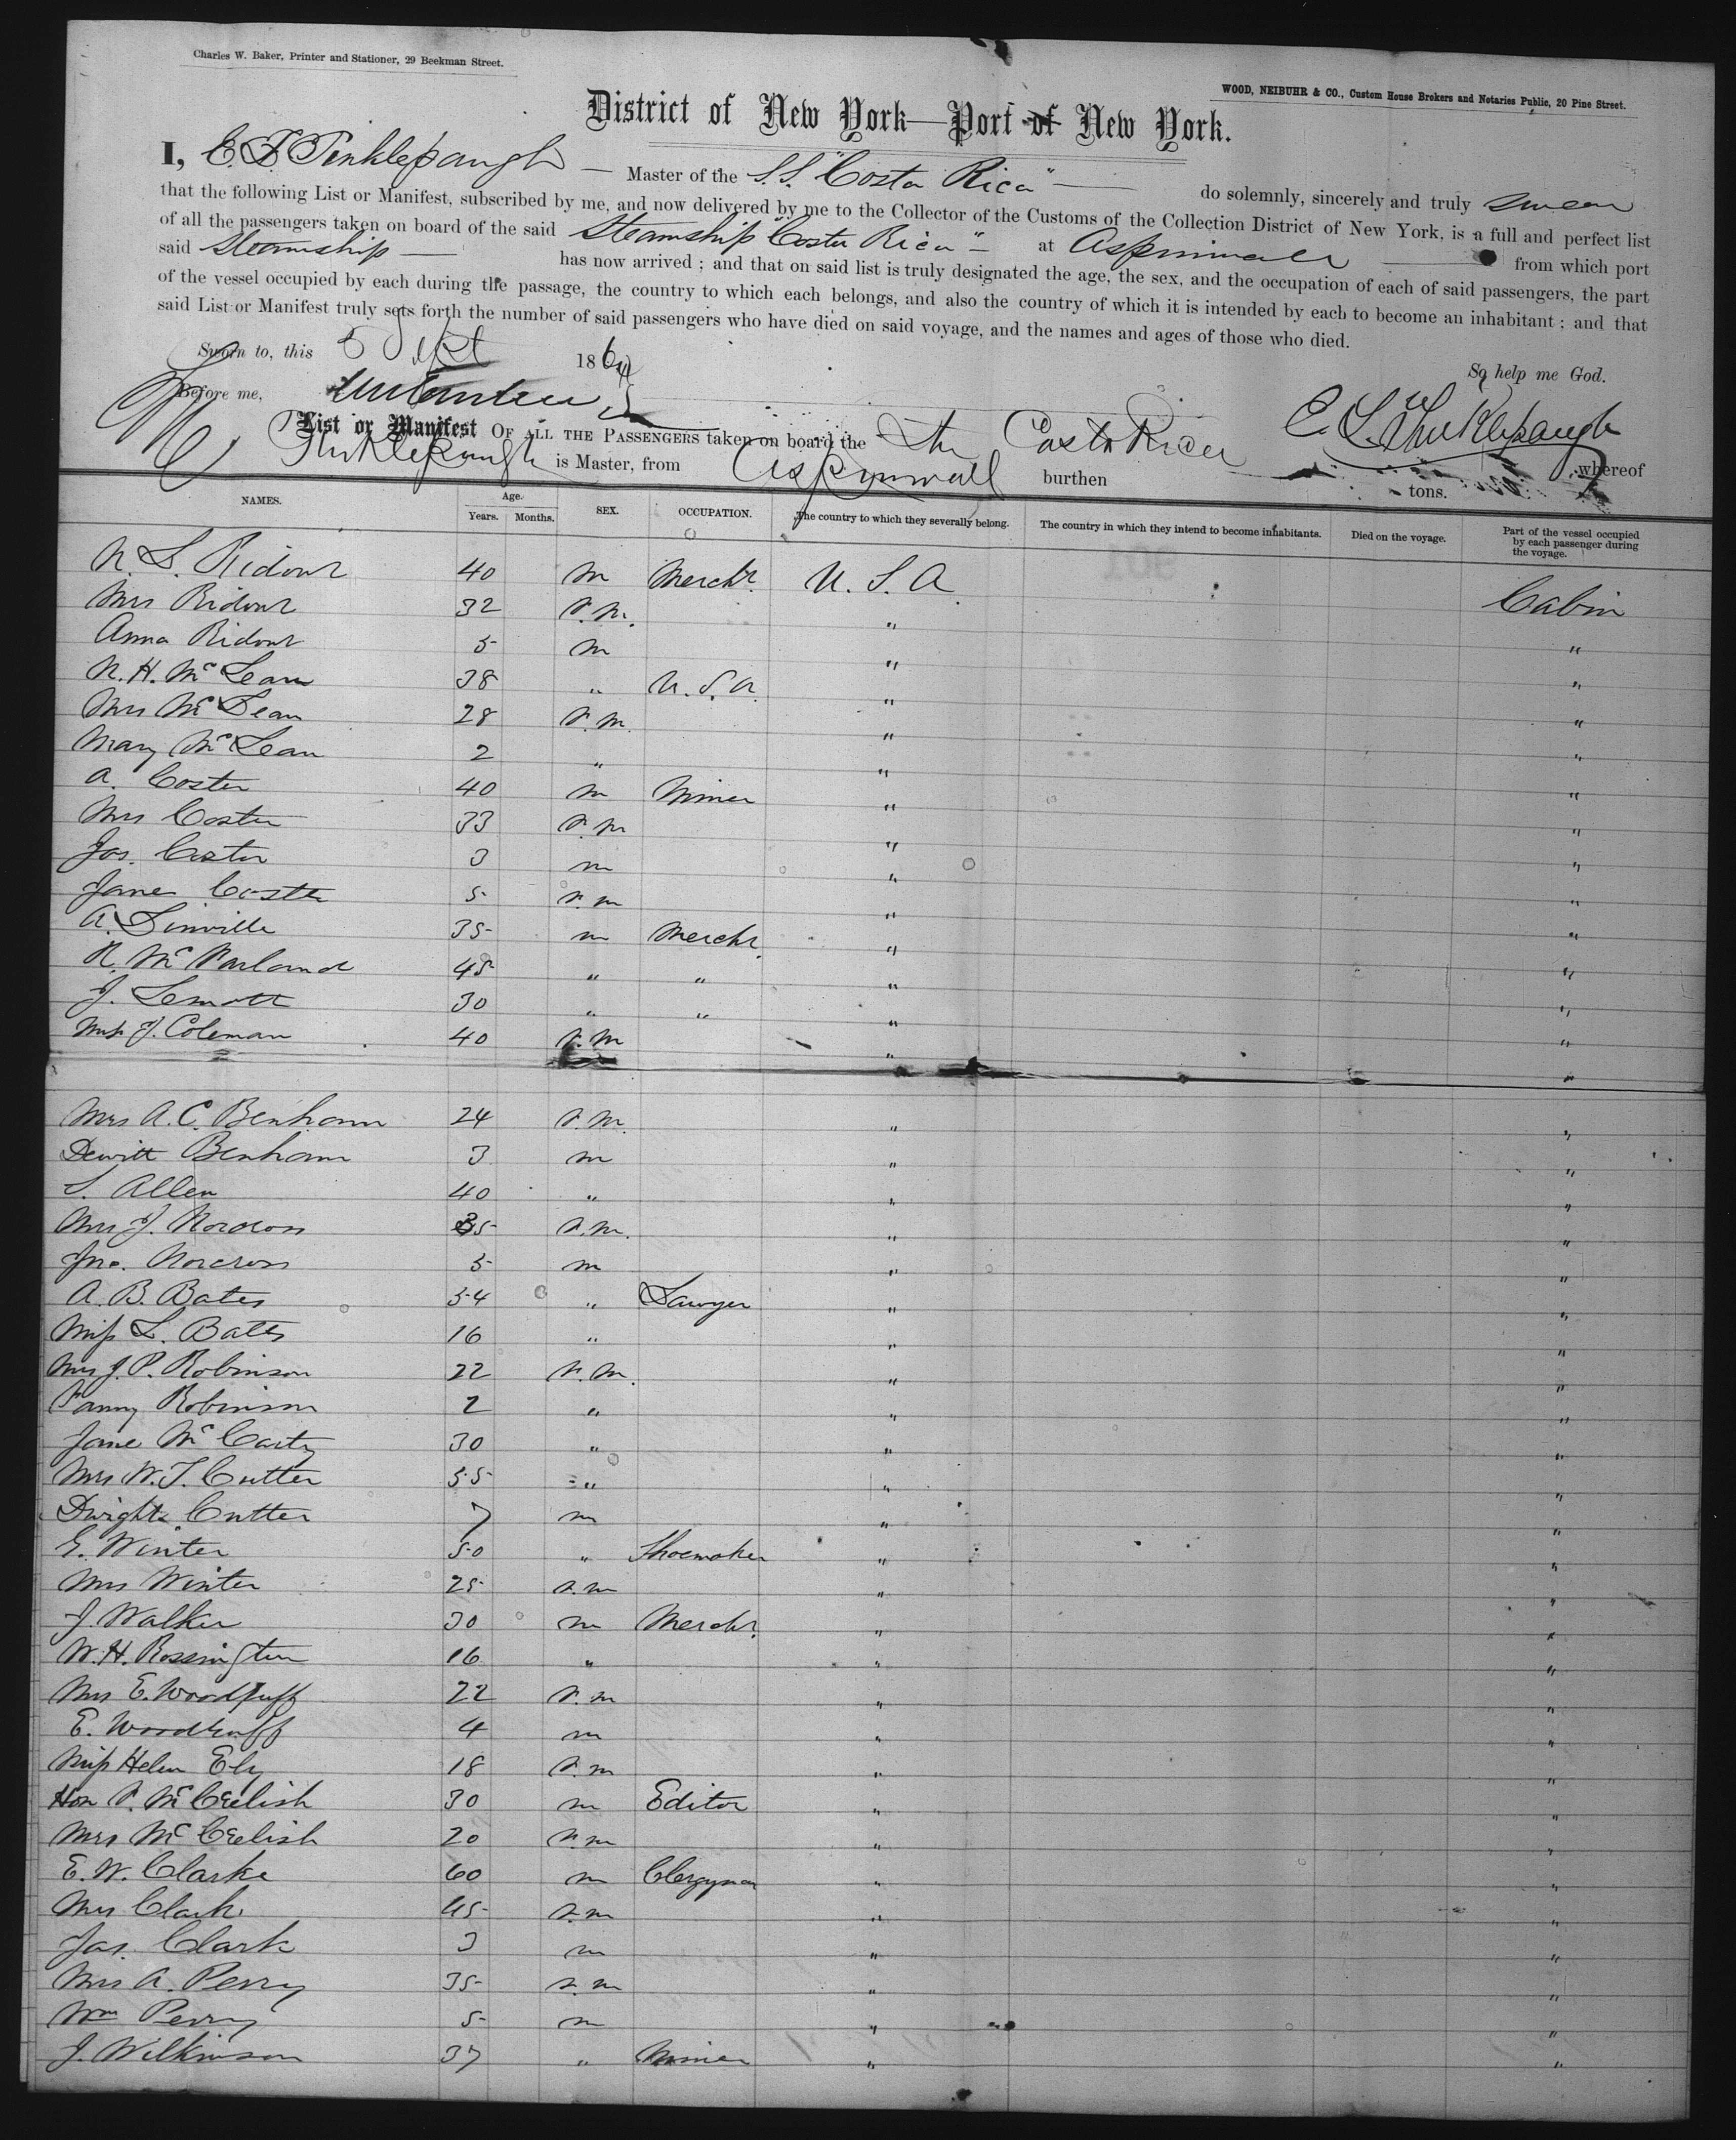 Charles W. Baker, Printer and Stationer, 29 Beekman Street.
WOOD, NEIBUHR & CO., Custom House Brokers and Notaries Public, 20 Pine Street.
District of New York—Port of New York.
I, E. L. Tinklepaugh — Master of the S.S. "Costa Rica" — do solemnly, sincerely and truly swear
that the following List or Manifest, subscribed by me, and now delivered by me to the Collector of the Customs of the Collection District of New York, is a full and perfect list
of all the passengers taken on board of the said Steamship "Costa Rica" — at Aspinwall — from which port
said Steamship — has now arrived; and that on said list is truly designated the age, the sex, and the occupation of each of said passengers, the part
of the vessel occupied by each during the passage, the country to which each belongs, and also the country of which it is intended by each to become an inhabitant; and that
said List or Manifest truly sets forth the number of said passengers who have died on said voyage, and the names and ages of those who died.
Sworn to, this 5 Sept 1864
So help me God.
Before me,
E. L. Tinklepaugh
List or Manifest OF ALL THE PASSENGERS taken on board the Str Costa Rica whereof
Tinklepaugh is Master, from Aspinwall burthen tons.
NAMES. Age. Years. Months. SEX. OCCUPATION. The country to which they severally belong. The country in which they intend to become inhabitants. Died on the voyage. Part of the vessel occupied by each passenger during the voyage.
N. S. Ridout 40 m Mercht. U. S. A. Cabin
Mrs Ridout 32 F.m. " "
Anna Ridout 5 m " "
N. H. McLean 38 " U.S.A. " "
Mrs McLean 28 F.m. " "
Mary McLean 2 " " "
A. Coster 40 m Miner " "
Mrs Coster 33 F.m " "
Jos. Coster 3 m " "
Jane Coster 5 F.m " "
A. Linville 35 m Mercht. " "
R. McFarland 45 " " " "
J. Lemott 30 " " " "
Mrs J. Coleman 40 F.m " "
Mrs A. C. Benham 24 F.m. " "
Dewitt Benham 3 m " "
S. Allen 40 " " "
Mrs J. Norcross 35 F.m. " "
Jno. Norcross 5 m " "
A. B. Bates 54 " Lawyer " "
Miss L. Bates 16 " " "
Mrs J. P. Robinson 22 F.m. " "
Fanny Robinson 2 " " "
Jane McCarty 30 " " "
Mrs W. T. Cutter 55 " " "
Dwight Cutter 7 m " "
E. Winter 50 " Shoemaker " "
Mrs Winter 25 F.m " "
J. Walker 30 m Mercht. " "
W. H. Rossington 16 " " "
Mrs E. Woodruff 22 F.m " "
E. Woodruff 4 m " "
Miss Helen Ely 18 F.m " "
Hon F. McCrelish 30 m Editor " "
Mrs McCrelish 20 F.m " "
E. W. Clarke 60 m Clergyman " "
Mrs Clark 45 F.m " "
Jas. Clark 3 m " "
Mrs A. Perry 35 F.m " "
Wm Perry 5 m " "
J. Wilkinson 37 " Miner " "